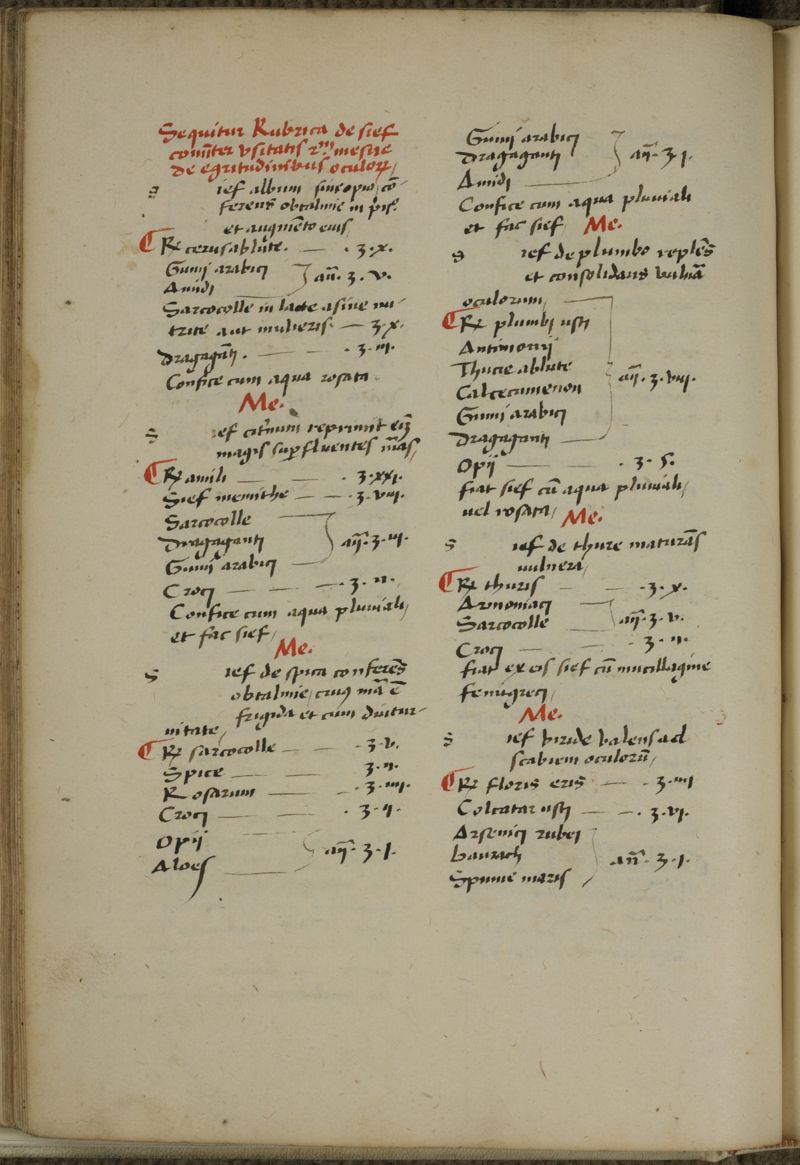 Sequitur Rubrica de sief
com̄iter vsitatis
de egritudinibus oculoꝝ
s ief album
obtalmie in
et augmēto eius
℞ cerus ablute. — . ʒ. x.
Gumi arabici
Amidi } añ. ʒ. v.
Sarcocolle in lacte asine nu-
trite aut mulieris — ʒ x.
Dragagāti. — . ʒ. iii.
Confice cum aqua rosata
Me.
s ief citrinum reprimit
magis sup̄fluentes
℞ amili — . ʒ. xxi.
Sief memithe — . ʒ. viii.
Sarcocolle
Dragaganti } añ. ʒ. iii.
Gumi arabici
Croci — . ʒ. ii.
Confice cum aqua pluuiali
et fac sief
Me.
s ief de spica conferēs
obtalmie cuiꝰ mā ē
frigida et cum diutur-
nitate
℞ sarcocolle — . ʒ. v.
Spice — ʒ. ii.
Rosarum — . ʒ. iiii.
Croci — . ʒ. ii.
Opij
Aloes } añ. ʒ. i.
Gumi arabici
Dragaganti } añ. ʒ i.
Amidi
Confice cum aqua pluuiali
et fac sief Me.
s ief de plumbo replēs
et consolidans vulnā
oculorum
℞ plumbi usti
Antimonij
Thucie ablute
Calcecumenon } añ. ʒ. viii.
Gumi arabici
Dragaganti
Opij — . ʒ. s.
fiat sief cū aqua pluuiali
uel rosata Me.
s ief de thure maturās
vulnera
℞ thuris — . ʒ. x.
Armoniaci
Sarcocolle } añ. ʒ. v.
Croci — ʒ. ii.
fiat ex eis sief cū mucillagine
fenugreci
Me.
s ief viride valens ad
scabiem oculorū
℞ floris eris — . ʒ. iii
Colcatar usti — . ʒ. vi.
Arsenici rubei
baurach } añ. ʒ. i.
Spume maris